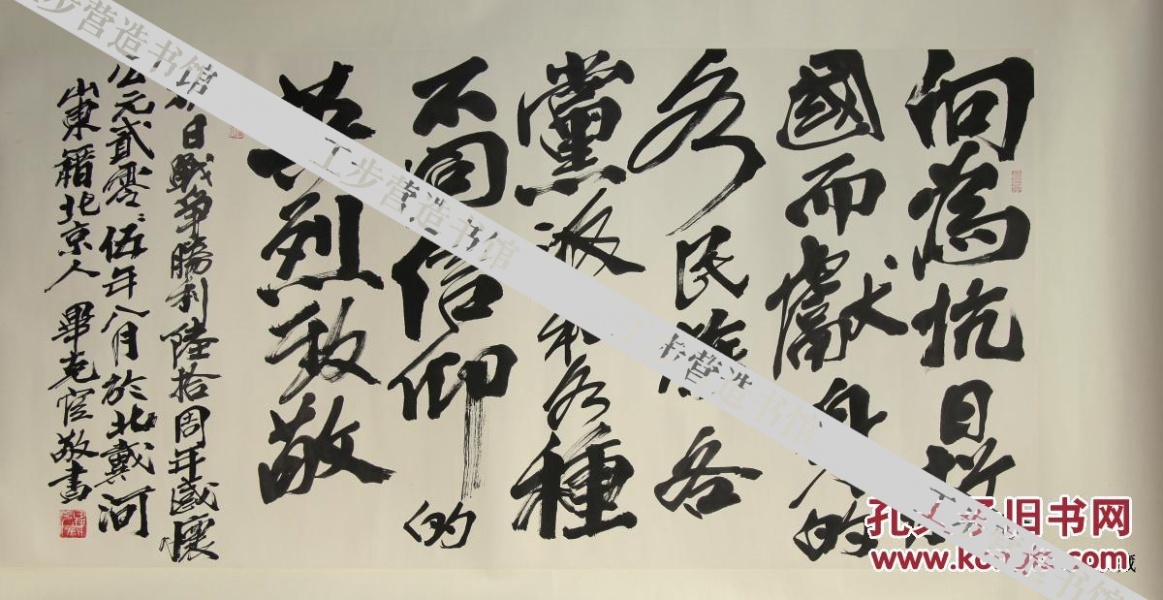 向為抗日
國而獻身的
各民族各
黨派和各種
不同信仰的
先烈致敬
日戰爭勝利陸拾周年感懷
公元貳零零伍年八月於北戴河
山東籍北京人 畢克官敬書
工步营造书馆
工步营造书馆
工步营造书馆
孔夫子旧书网